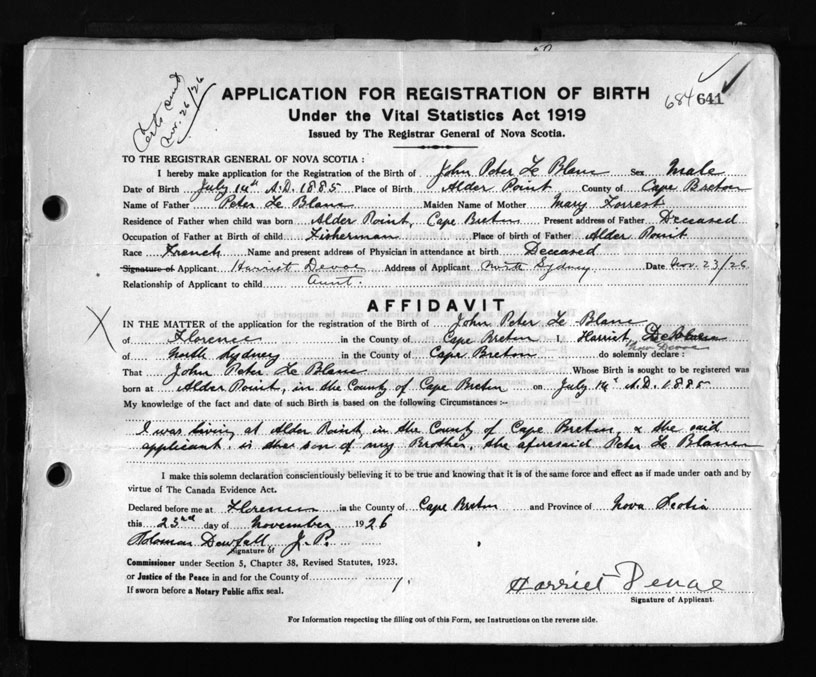 Certs sent
Nov. 26/26
APPLICATION FOR REGISTRATION OF BIRTH
684 641
Under the Vital Statistics Act 1919
Issued by The Registrar General of Nova Scotia.
TO THE REGISTRAR GENERAL OF NOVA SCOTIA :
I hereby make application for the Registration of the Birth of John Peter Le Blanc Sex Male
Date of Birth July 14th A.D. 1885 Place of Birth Alder Point County of Cape Breton
Name of Father Peter Le Blanc Maiden Name of Mother Mary Forrest
Residence of Father when child was born Alder Point, Cape Breton Present address of Father Deceased
Occupation of Father at Birth of child Fisherman Place of birth of Father Alder Point
Race French Name and present address of Physician in attendance at birth Deceased
Signature of Applicant Harriet Devoe Address of Applicant North Sydney Date Nov. 23/26
Relationship of Applicant to child Aunt.
AFFIDAVIT
IN THE MATTER of the application for the registration of the Birth of John Peter Le Blanc
of Florence in the County of Cape Breton I, Harriet
now Devoe
of North Sydney in the County of Cape Breton do solemnly declare :
That John Peter Le Blanc Whose Birth is sought to be registered was
born at Alder Point, in the County of Cape Breton on July 14th A.D. 1885
My knowledge of the fact and date of such Birth is based on the following Circumstances :-
I was living at Alder Point, in the County of Cape Breton, & the said
applicant is the son of my Brother, the aforesaid Peter Le Blanc
I make this solemn declaration conscientiously believing it to be true and knowing that it is of the same force and effect as if made under oath and by
virtue of The Canada Evidence Act.
Declared before me at Florence in the County of Cape Breton and Province of Nova Scotia
this 23rd day of November 1926
J. P.
Signature of
Commissioner under Section 5, Chapter 38, Revised Statutes, 1923.
or Justice of the Peace in and for the County of
If sworn before a Notary Public affix seal.
Harriet Devoe
Signature of Applicant.
For Information respecting the filling out of this Form, see Instructions on the reverse side.